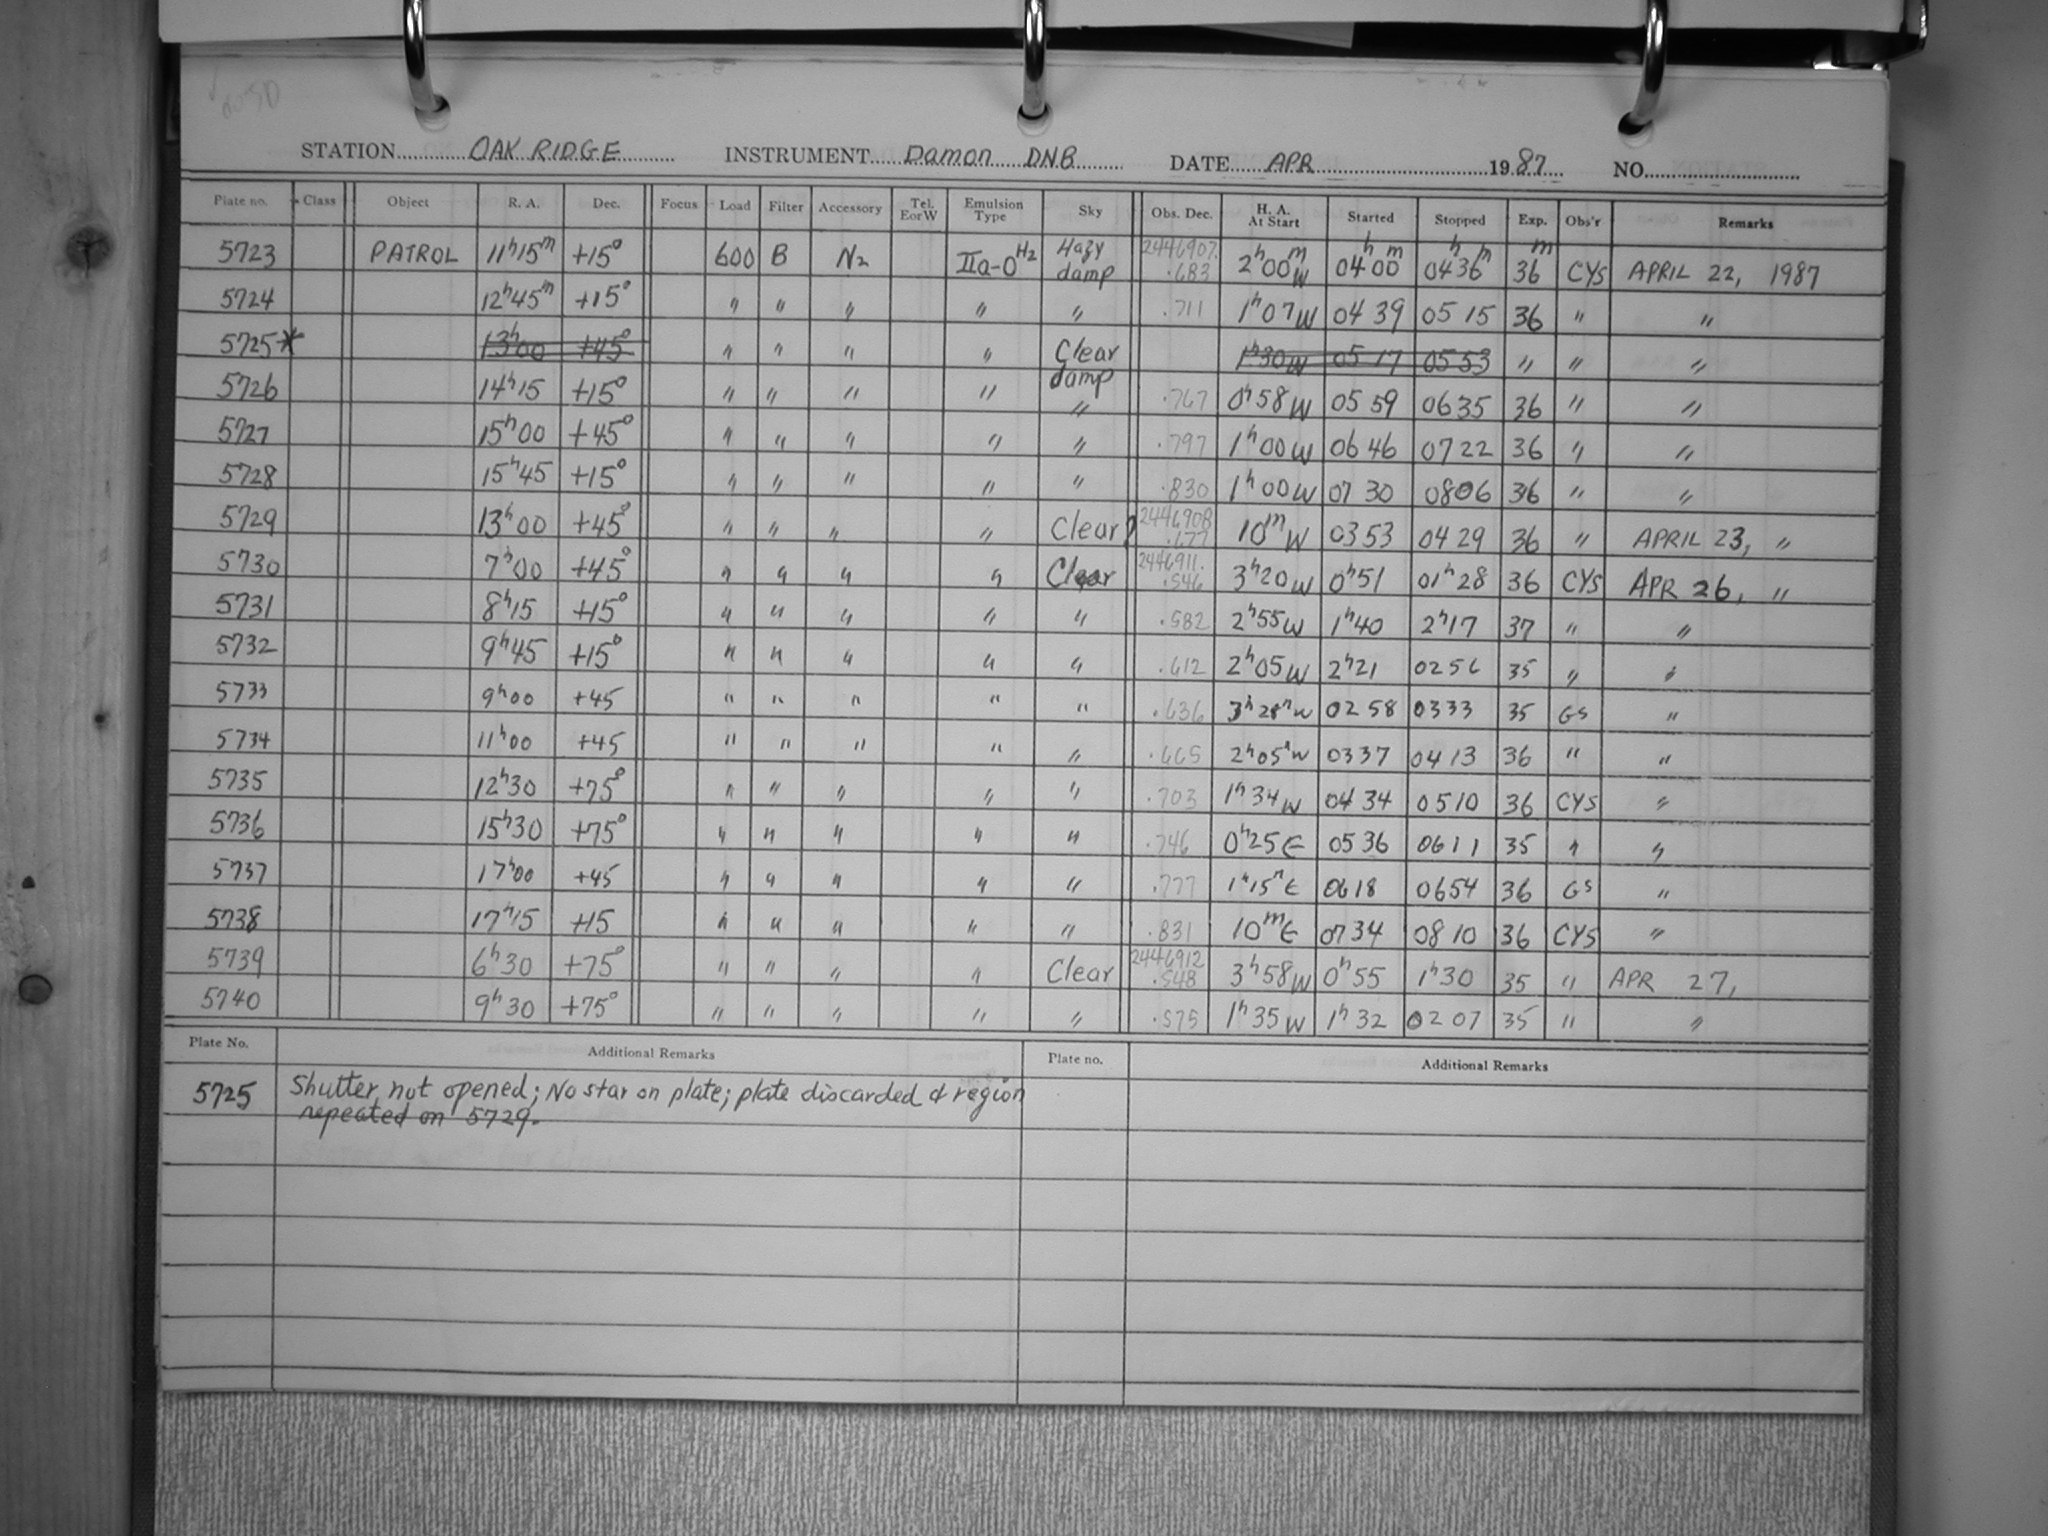 STATION OAK RIDGE INSTRUMENT Damon DNB DATE APR 1987 NO.
Plate no. Class Object R. A. Dec. Focus Load Filter Accessory Tel. EorW Emulsion Type Sky Obs. Dec. H. A. At Start Started Stopped Exp. Obs'r Remarks
5723 PATROL 11h15m +15° 600 B N2 IIa-O H2 Hazy damp 2446907. .683 2h00m W 04h00m 04h36m 36m CYS APRIL 22, 1987
5724 12h45m +15° " " " " " .711 1h07W 04 39 05 15 36 " "
5725* 13h00 +45° " " " " Clear damp 1h30W 05 17 05 53 " " "
5726 14h15 +15° " " " " " .767 0h58W 05 59 06 35 36 " "
5727 15h00 +45° " " " " " .797 1h00W 06 46 07 22 36 " "
5728 15h45 +15° " " " " " .830 1h00W 07 30 0806 36 " "
5729 13h00 +45° " " " " Clear? 2446908 .677 10m W 03 53 04 29 36 " APRIL 23, "
5730 7h00 +45° " " " " Clear 2446911. .546 3h20W 0h51 01h28 36 CYS APR 26, "
5731 8h15 +15° " " " " " .582 2h55W 1h40 2h17 37 " "
5732 9h45 +15° " " " " " .612 2h05W 2h21 0256 35 " "
5733 9h00 +45 " " " " " .636 3h28m W 02 58 0333 35 GS "
5734 11h00 +45 " " " " " .665 2h05m W 0337 04 13 36 " "
5735 12h30 +75° " " " " " .703 1h34W 04 34 0510 36 CYS "
5736 15h30 +75° " " " " " .746 0h25E 05 36 0611 35 " "
5737 17h00 +45 " " " " " .777 1h15m E 0618 0654 36 GS "
5738 17h15 +15 " " " " " .831 10m E 0734 08 10 36 CYS "
5739 6h30 +75° " " " " Clear 2446912 .548 3h58W 0h55 1h30 35 " APR 27,
5740 9h30 +75° " " " " " .575 1h35W 1h32 0207 35 " "
Plate No. Additional Remarks Plate no. Additional Remarks
5725 Shutter not opened; No star on plate; plate discarded & region
repeated on 5729.